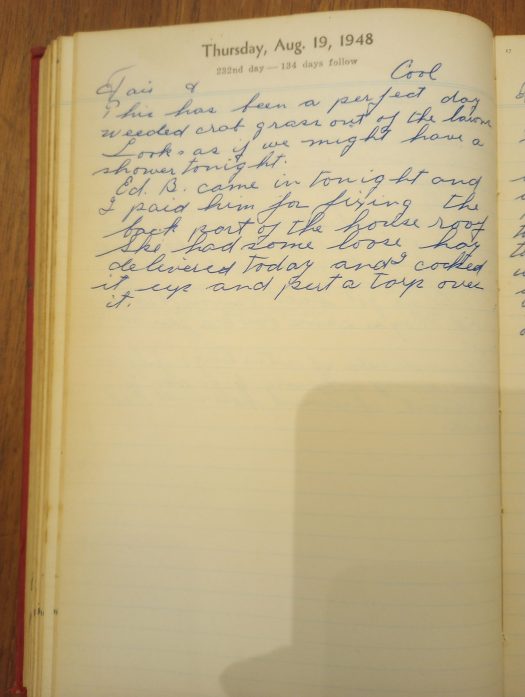 Thursday, Aug. 19, 1948
232nd day — 134 days follow
Fair & Cool
This has been a perfect day
weeded crab grass out of the lawn
Looks as if we might have a
shower tonight.
Ed. B. came in tonight and
I paid him for fixing the
back part of the house roof
She had some loose hay
delivered today and I cocked
it up and put a tarp over
it.